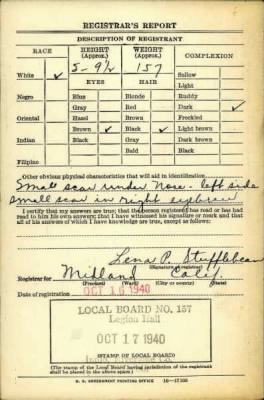 REGISTRAR'S REPORT
DESCRIPTION OF REGISTRANT
RACE HEIGHT (Approx.) WEIGHT (Approx.) COMPLEXION
5-9½ 157
White ✓ EYES HAIR Sallow
Light
Negro Blue Blonde Ruddy
Gray Red Dark ✓
Oriental Hazel Brown Freckled
Brown ✓ Black ✓ Light brown
Indian Black Gray Dark brown
Bald Black
Filipino
Other obvious physical characteristics that will aid in identification
Small scar under nose - left side
small scar in right
I certify that my answers are true; that the person registered has read or has had
read to him his own answers; that I have witnessed his signature or mark and that
all of his answers of which I have knowledge are true, except as follows:
Lena P. Stufflebean
(Signature of registrar)
Registrar for Midland Calif.
(Precinct) (Ward) (City or county) (State)
Date of registration OCT 16 1940
LOCAL BOARD NO. 157
Legion Hall
OCT 17 1940
(STAMP OF LOCAL BOARD)
(The stamp of the Local Board having jurisdiction of the registrant
shall be placed in the above space.)
U. S. GOVERNMENT PRINTING OFFICE 16-17105